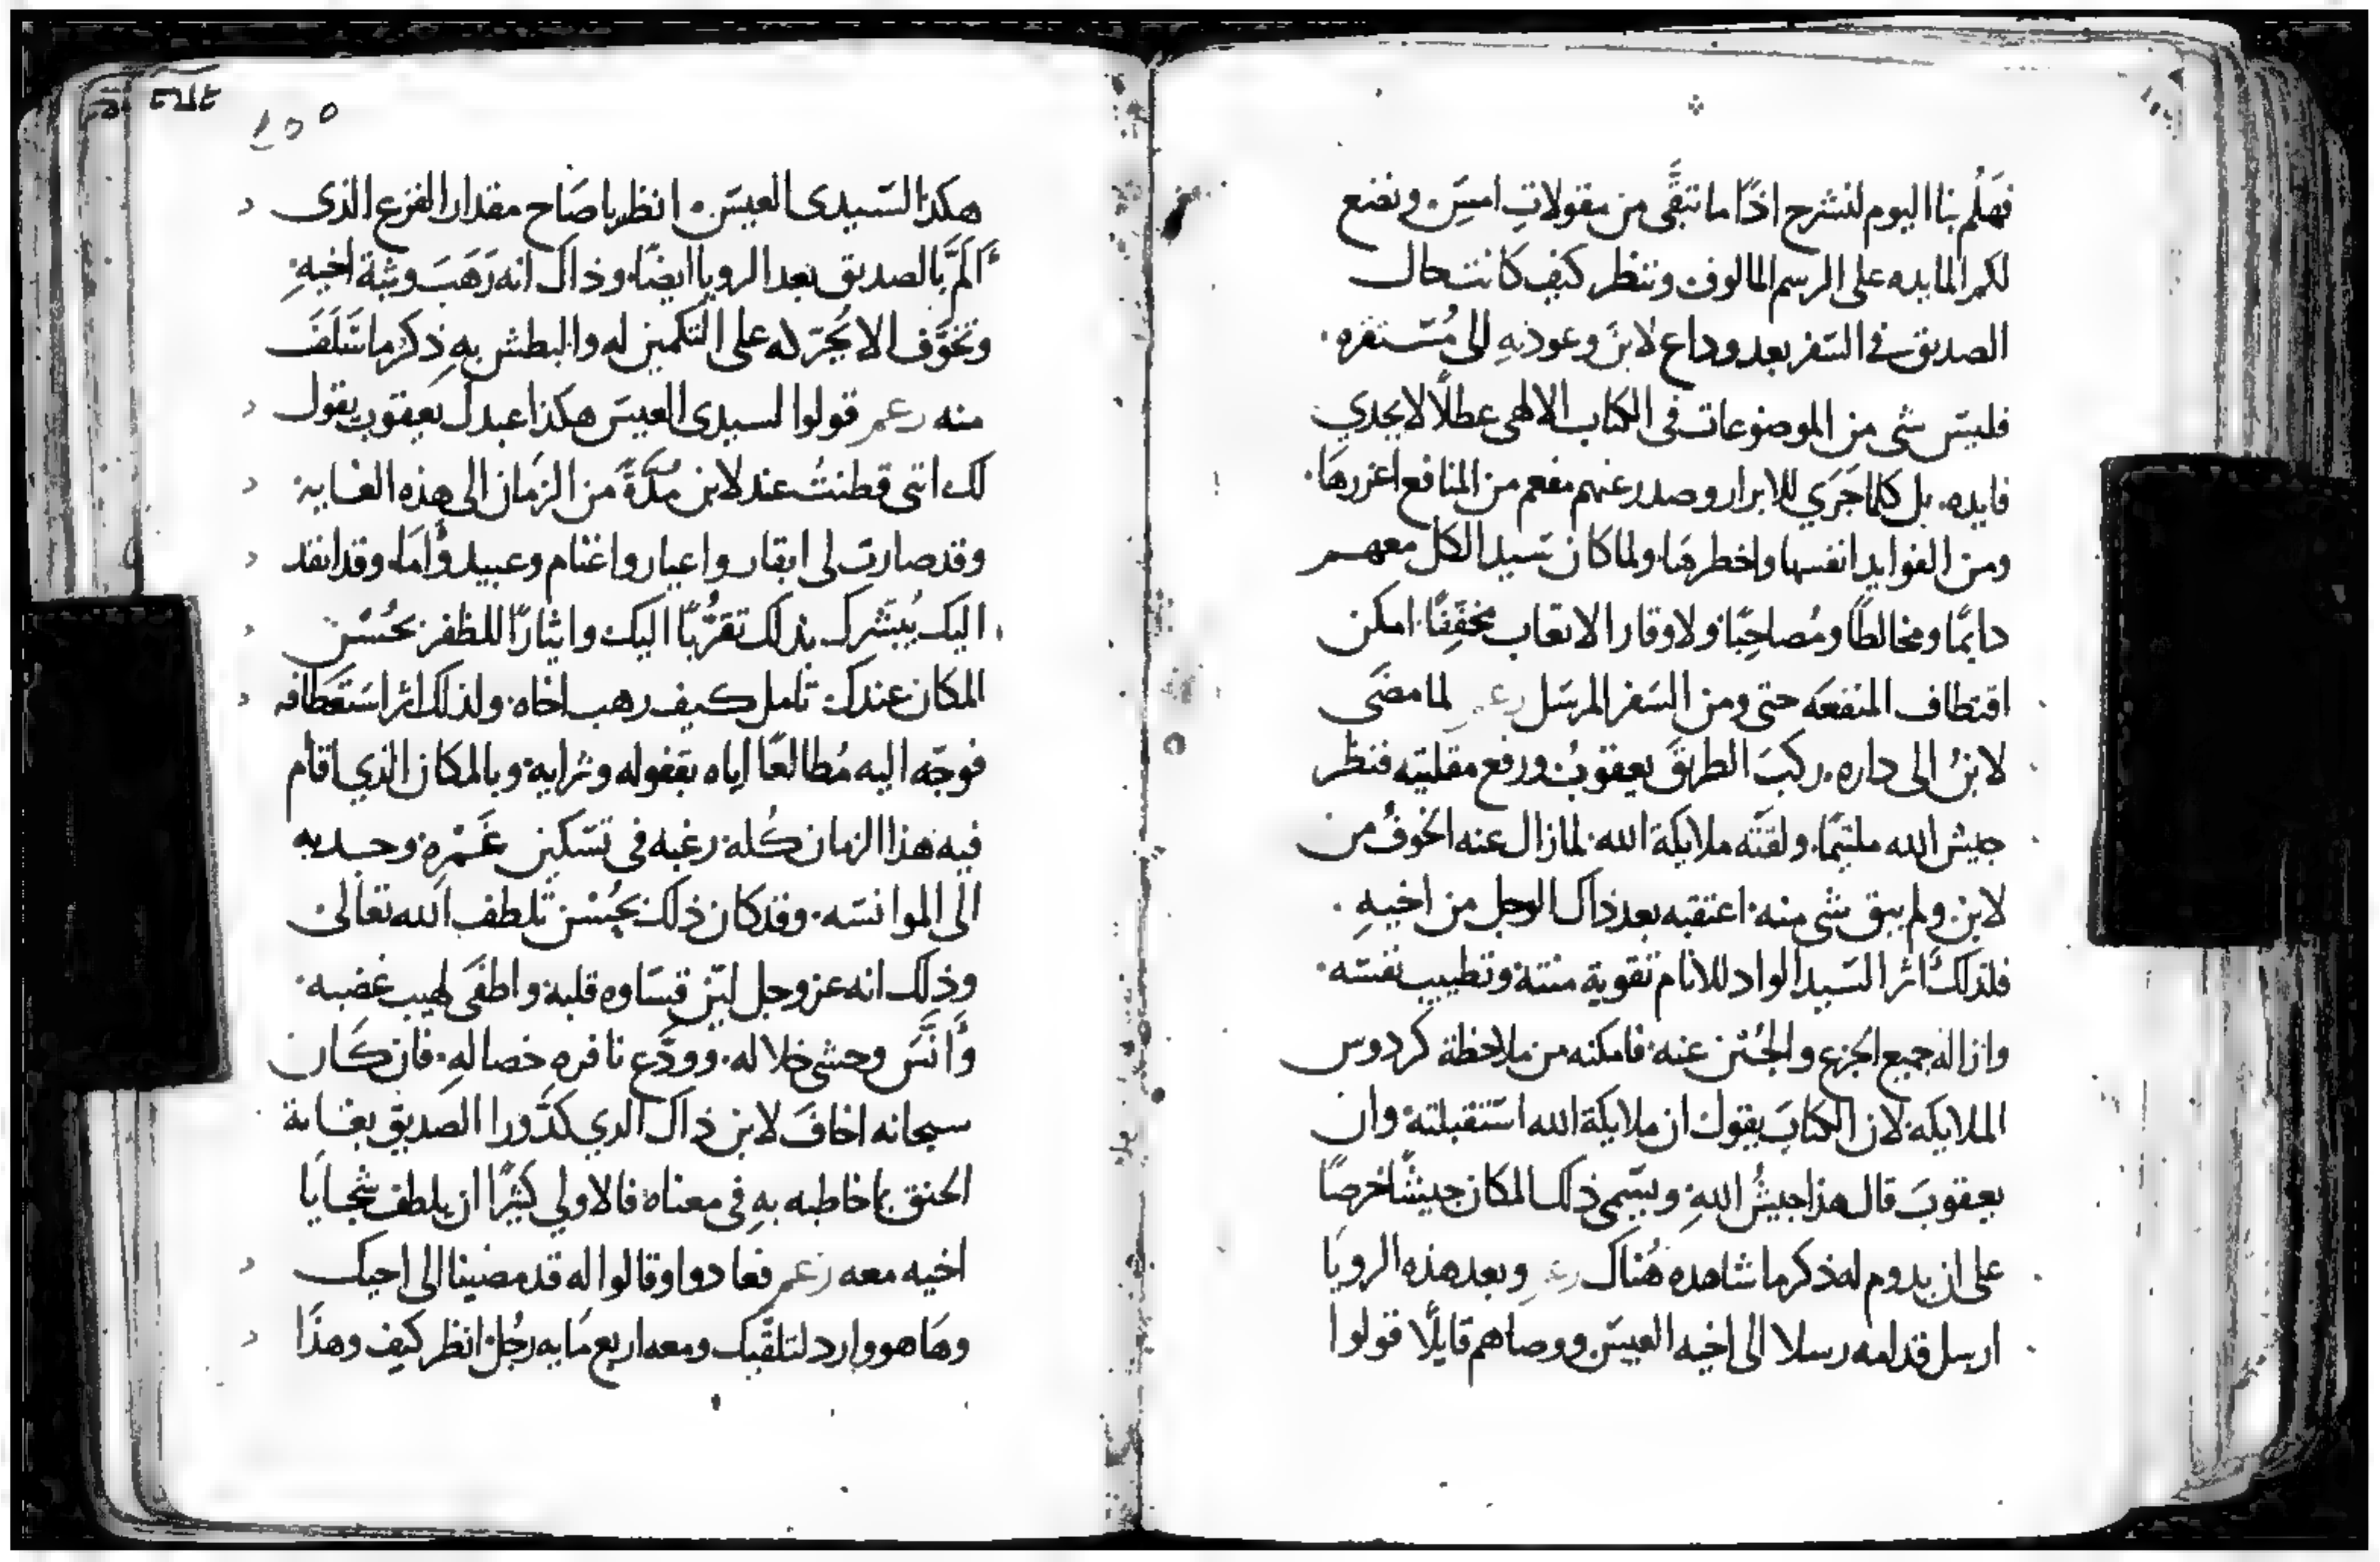 فهلم بنا اليوم لنشرح اذًا ما تبقَّى من مقولات امسِ. ونضع
لكم المايده على الرسم المالوف وننظر كيف كانت حال
الصديق في السفر بعد وداع لابن وعودته الى مُستقره.
فليس شي من الموضوعات في الكتاب الالهي عطلًا لا يجدي
فايده. بل كلما جَري للابرار وصدر عنهم مفعم من المنافع اغزرها.
ومن الفوايد انفسها واخطرها. ولما كان سيد الكل معهم
دايمًا ومخالطًا ومُصاحِبًا ولاوقار الاتعاب مخففًا. امكن
اقتطاف المنفعه حتى ومن السفر المرسل زعم لما مضَى
لابنُ الى داره. ركبَ الطريقَ يعقوبُ ورفع مقلتيه فنظر
جيش الله ملتيمًا. ولقتَه ملايكة الله. لما زال عنه الخوفُ من
لابن. ولم يبق شي منه. اعتقبه بعد ذاك الوجل من اخيهِ.
فلذلك اثر السيد الواد للانام تقوية منته وتطييب نفسه.
وازاله جميع الجزع والجُبن عنه. فامكنه من ملاحظة كردوس
الملايكه. لان الكتابَ يقول ان ملايكة الله استقبلته. وان
يعقوبَ قال هذا جيشُ اللهِ. ويسمي ذلك المكان جيشًا حرصًا
على ان يدوم له ذكر ما شاهده هُناك زعم وبعد هذه الرويا
ارسل قدامه رسلا الى اخيه العيس. ووصاهم قايلًا قولوا
١٥٥
هكذا لسيدي العيس. انظر يا صَاح مقدار الفزع الذي
اَلَمَّ بالصديق بعد الرويا ايضًا. وذاك انه رَهَبَ وثبة اخيهِ.
وتخوَّف الا يُجرّ له على التكمين له والبطش بهِ ذِكر ما سَلَفَ
منه زعم قولوا لسيدي العيس هكذا عبدك يعقوب يقول
لك انني قطنتُ عند لابن مدَّةً من الزمان الى هذه الغايه.
وقد صارت لي ابقار واعيار واغنام وعبيد وأمَا. وقد انفد
اليك يُبَشرك بذلك تقرُّبًا اليك وايثارًا للظفر بحُسْن
المكان عندك. تامل كيف رهب اخاه. ولذلك اثر استعطافه
فوجّه اليه مُطالعًا اياه بقفوله وثرايه. وبالمكان الذي اقام
فيه هذا الزمان كُله. رغبه في تسكين غَمْرِه. وحديه
الى الموانسه. وقد كان ذلك بحُسْن تلطف الله تعالى
وذلك انه عز وجل ليّن قساوه قلبه. واطفَى لهيب غضبه.
وأنَّسَ وحشي خلاله. وودَّع نافره خصالهِ. فان كان
سبحانه اخافَ لابن ذاك الذي كدَّ ورا الصديق بغاية
الحنق بما خاطبه بهِ في معناه. فالاولي كثيرًا ان يلطف سَجايا
اخيه معه زعم فعادوا وقالوا له قد مضينا الى اخيك
وهَا هو وارد لتلقيك ومعه اربع مَايه رجُل. انظر كيف وهذَا